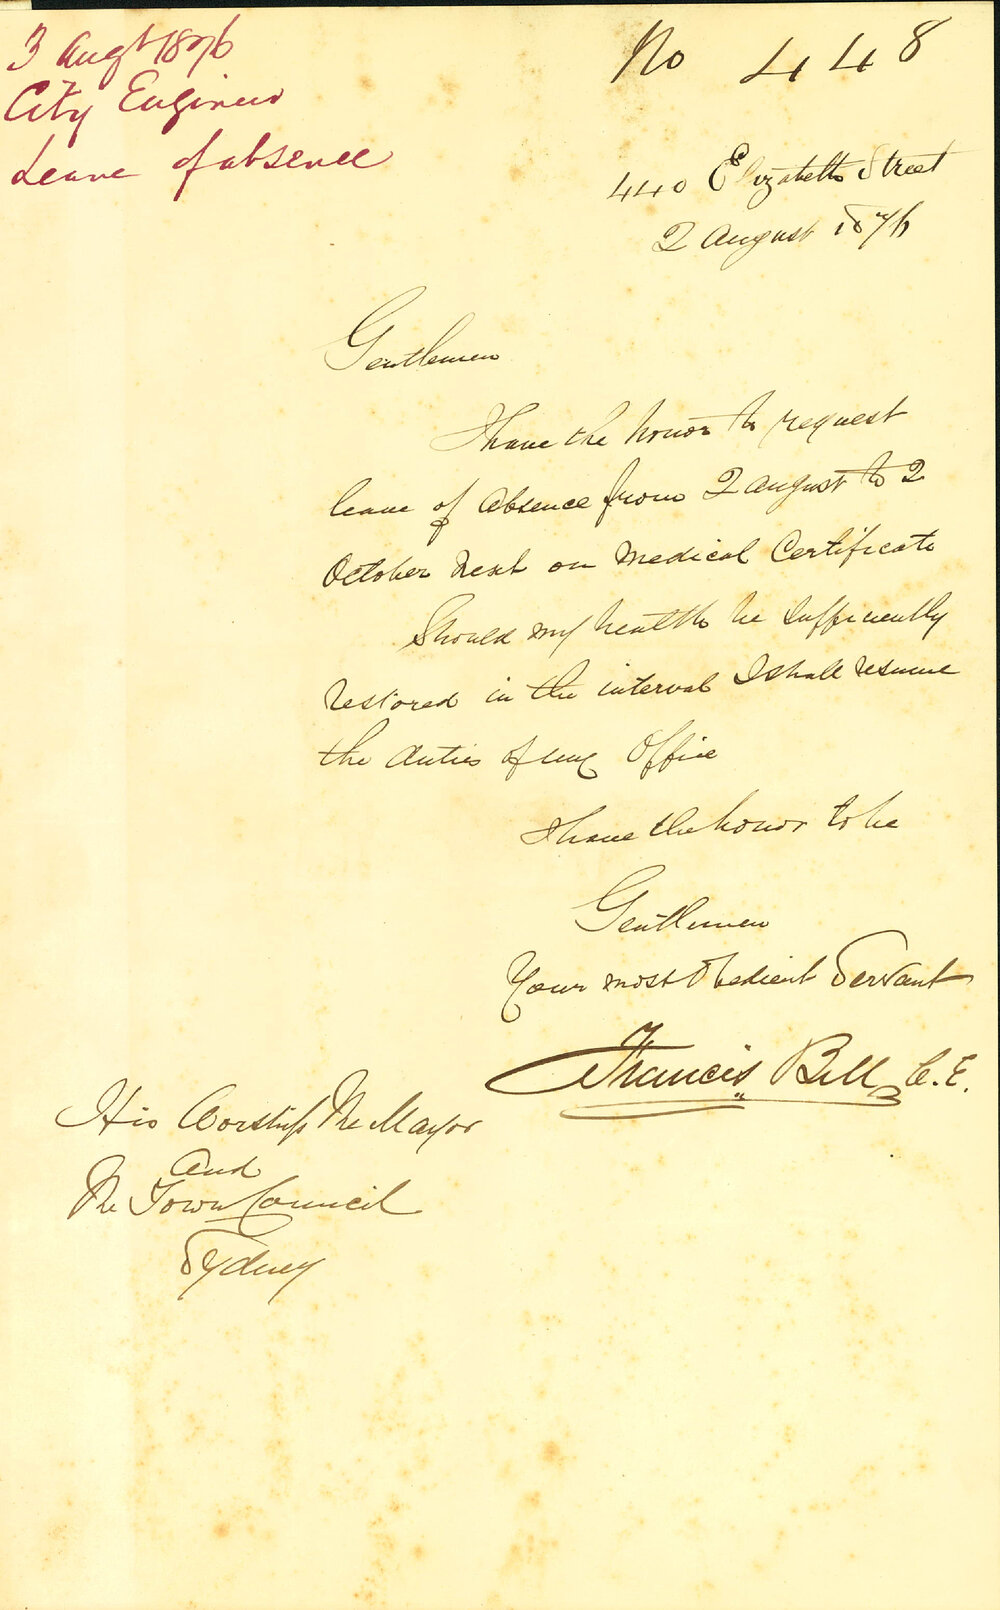 3 Augt 1876
City Engineer
Leave of absence
No 448
440 Elizabeth Street
2 August 1876
Gentlemen
I have the honor to request
leave of absence from 2 August to 2
October next on Medical Certificate
Should my health be sufficiently
restored in the interval I shall resume
the duties of my Office
I have the honor to be
Gentlemen
Your most Obedient Servant
Francis Bell C.E.
His Worship The Mayor
And
The Town Council
Sydney